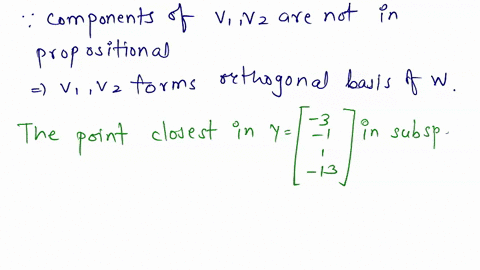 ∵ components of v₁, v₂ are not in
propositional
⇒ v₁, v₂ forms orthogonal basis of W.
The point closest in y = [-3 -1 1 -13] in subsp.